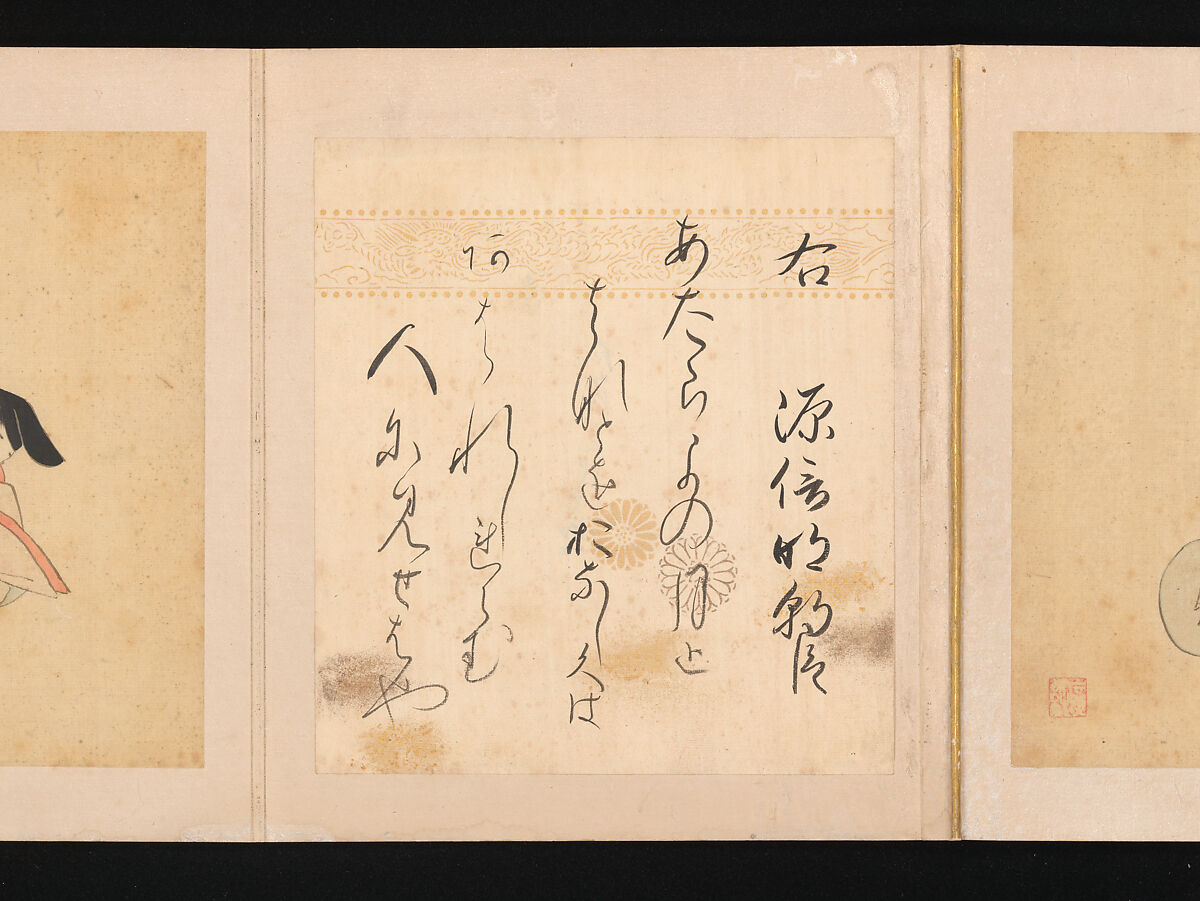 右　源信明朝臣
あたらよの月と
はなとをおなしくは
あはれしれらむ
人に見せはや